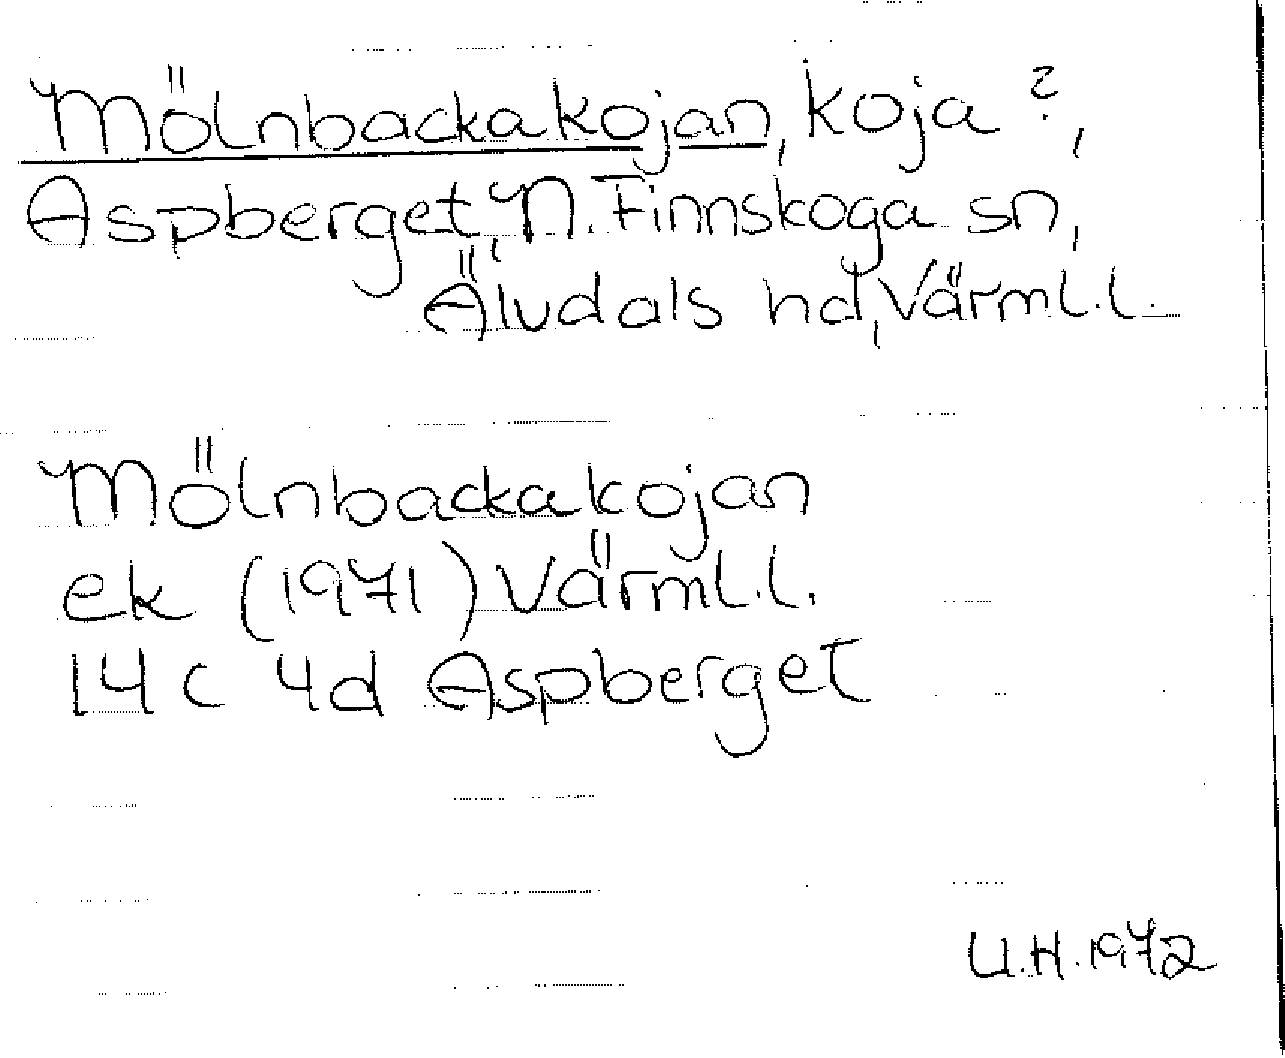 Mölnbackakojan, koja ?,
Aspberget, N. Finnskoga sn,
Älvdals hd, Värml. l.
Mölnbackakojan
ek (1971) Värml. l.
14 c 4d Aspberget
U.H. 1972